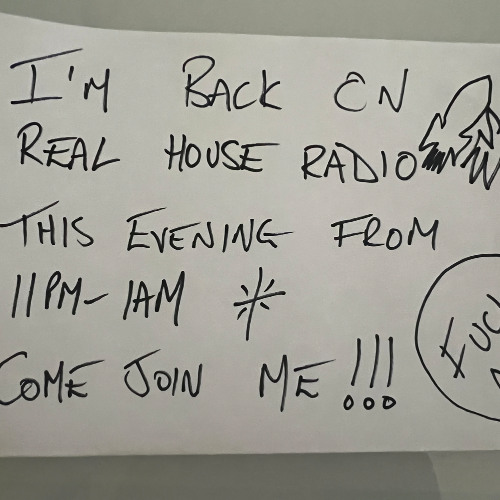 I'M BACK ON
REAL HOUSE RADIO
THIS EVENING FROM
11PM-1AM *
COME JOIN ME!!!